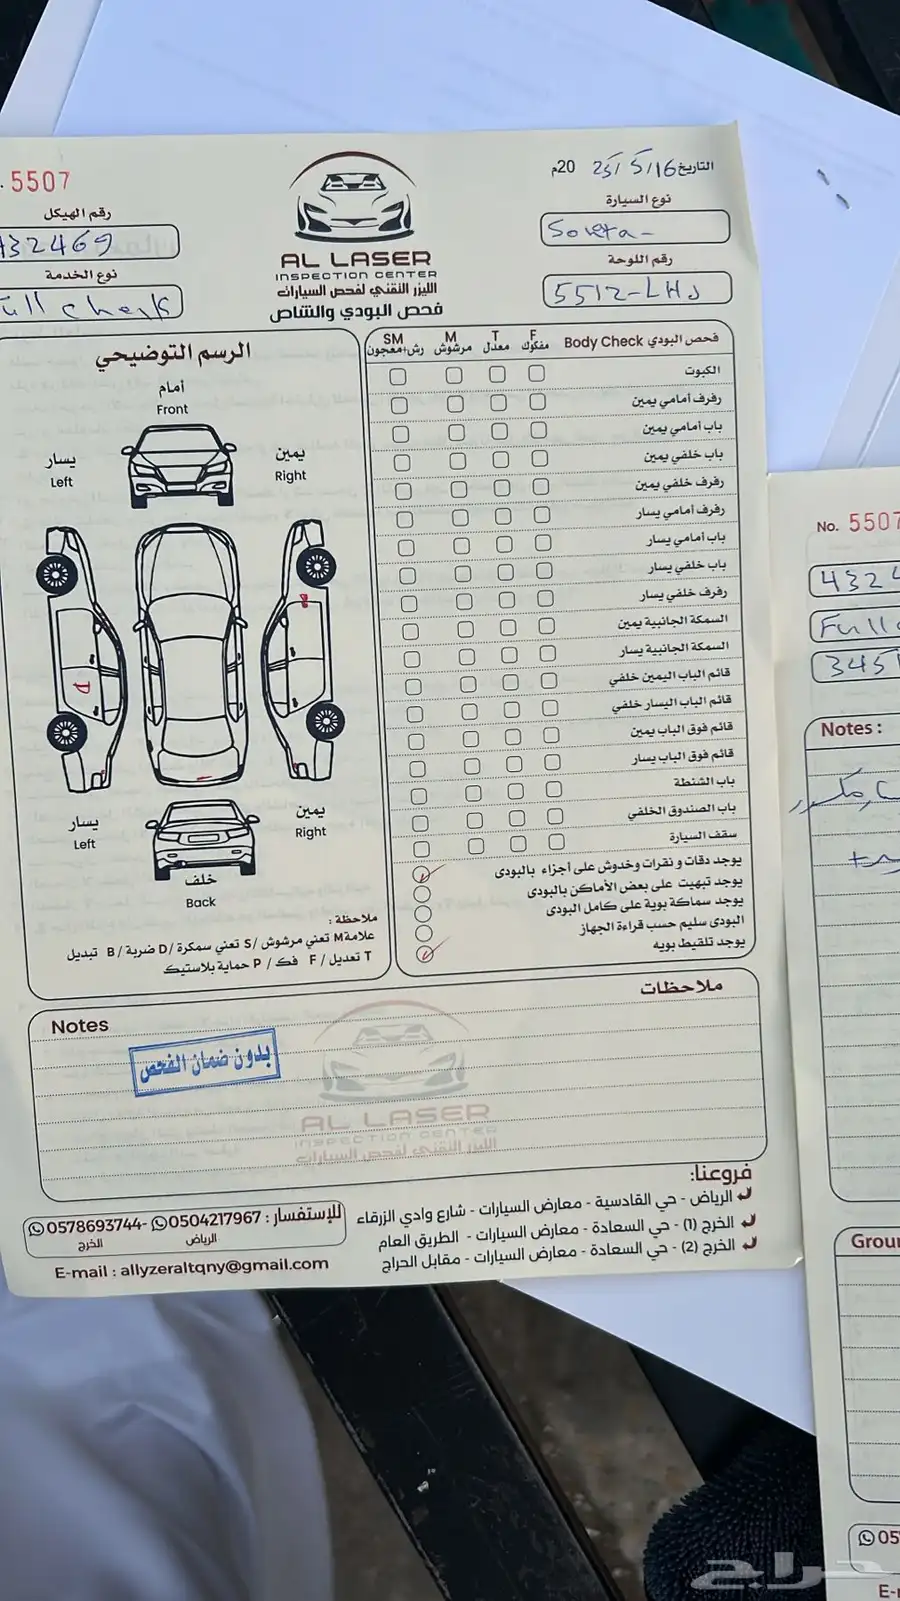 5507
رقم الهيكل
432469
نوع الخدمة
Full check
AL LASER
INSPECTION CENTER
الليزر التقني لفحص السيارات
فحص البودي والشاص
التاريخ 16/5/25 20م
نوع السيارة
Sonata
رقم اللوحة
5512-LHJ
الرسم التوضيحي
أمام
Front
يسار
Left
يمين
Right
D
يسار
Left
يمين
Right
خلف
Back
ملاحظة :
علامة M تعني مرشوش /S تعني سمكرة /D ضربة /B تبديل
T تعديل /F فك /P حماية بلاستيك
فحص البودي Body Check
F
مفكوك
T
معدل
M
مرشوش
SM
رش+معجون
الكبوت
رفرف أمامي يمين
باب أمامي يمين
باب خلفي يمين
رفرف خلفي يمين
رفرف أمامي يسار
باب أمامي يسار
باب خلفي يسار
رفرف خلفي يسار
السمكة الجانبية يمين
السمكة الجانبية يسار
قائم الباب اليمين خلفي
قائم الباب اليسار خلفي
قائم فوق الباب يمين
قائم فوق الباب يسار
باب الشنطة
باب الصندوق الخلفي
سقف السيارة
يوجد دقات و نقرات وخدوش على أجزاء بالبودى
يوجد تبهيت على بعض الأماكن بالبودى
يوجد سماكة بوية على كامل البودى
البودى سليم حسب قراءة الجهاز
يوجد تلقيط بويه
Notes
ملاحظات
بدون ضمان الفحص
AL LASER
INSPECTION CENTER
الليزر التقني لفحص السيارات
فروعنا:
الرياض - حي القادسية - معارض السيارات - شارع وادي الزرقاء
الخرج (1) - حي السعادة - معارض السيارات - الطريق العام
الخرج (2) - حي السعادة - معارض السيارات - مقابل الحراج
للإستفسار : 0504217967 - 0578693744
الرياض
الخرج
E-mail : allyzeraltqny@gmail.com
No. 5507
4324
Full
3451
Notes :
مكرر
Grou
05
E-
حراج